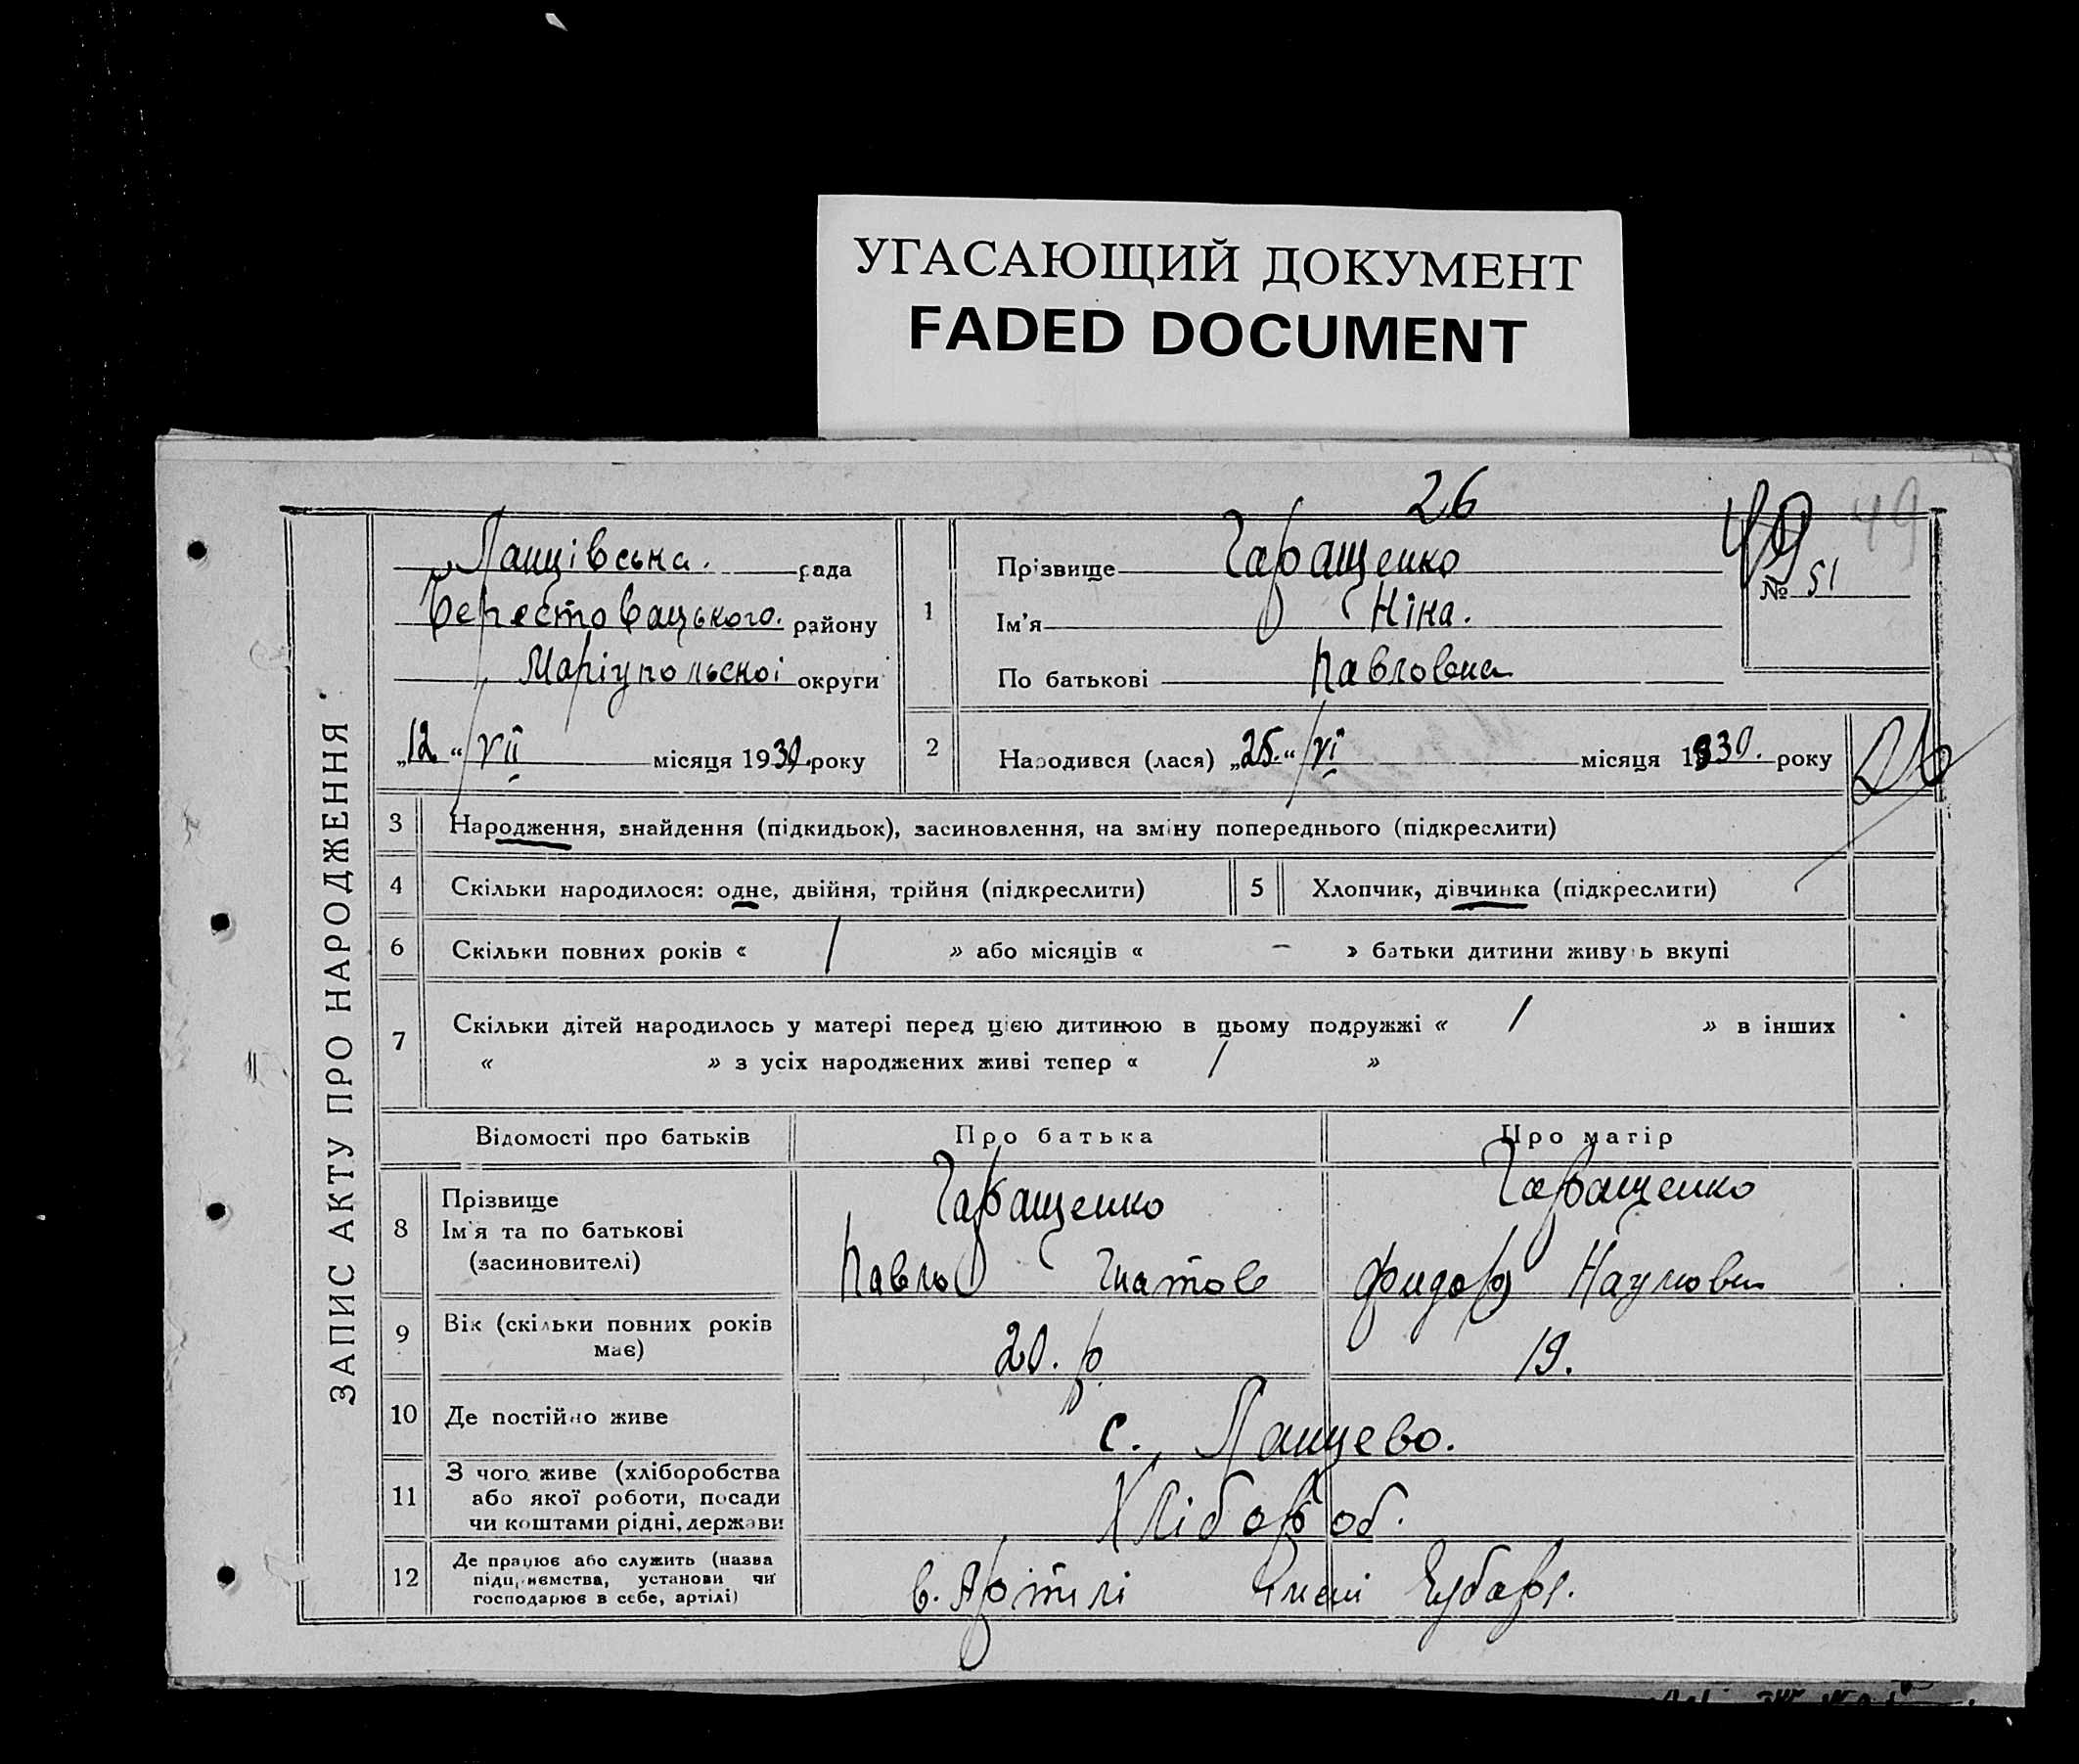 УГАСАЮЩИЙ ДОКУМЕНТ
FADED DOCUMENT
26
49
49
ЗАПИС АКТУ ПРО НАРОДЖЕННЯ
Ланцівська. рада
Берестовацького. району
Маріупольскоі округи
„12“ VII місяця 1930. року
1
Прізвище Гаращенко
Ім'я Ніна.
По батькові Павловна
№ 51
2 Народився (лася) „25.“ VI місяця 1930. року
3 Народження, знайдення (підкидьок), засиновлення, на зміну попереднього (підкреслити)
4 Скільки народилося: одне, двійня, трійня (підкреслити)
5 Хлопчик, дівчинка (підкреслити)
6 Скільки повних років « 1 » або місяців « – » батьки дитини живуть вкупі
7 Скільки дітей народилось у матері перед цією дитиною в цьому подружжі « 1 » в інших
« » з усіх народжених живі тепер « 1 »
Відомості про батьків Про батька Про матір
8 Прізвище
Ім'я та по батькові
(засиновителі)
Гаращенко
Павло Гнатов
Гаращенко
Наумовн
9 Вік (скільки повних років
має)
20. р. 19.
10 Де постійно живе с. Ланцево.
11 З чого живе (хліборобства
або якої роботи, посади
чи коштами рідні, держави
Хлібороб.
12 Де працює або служить (назва
підприємства, установи чи
господарює в себе, артілі)
в. Артилі імені